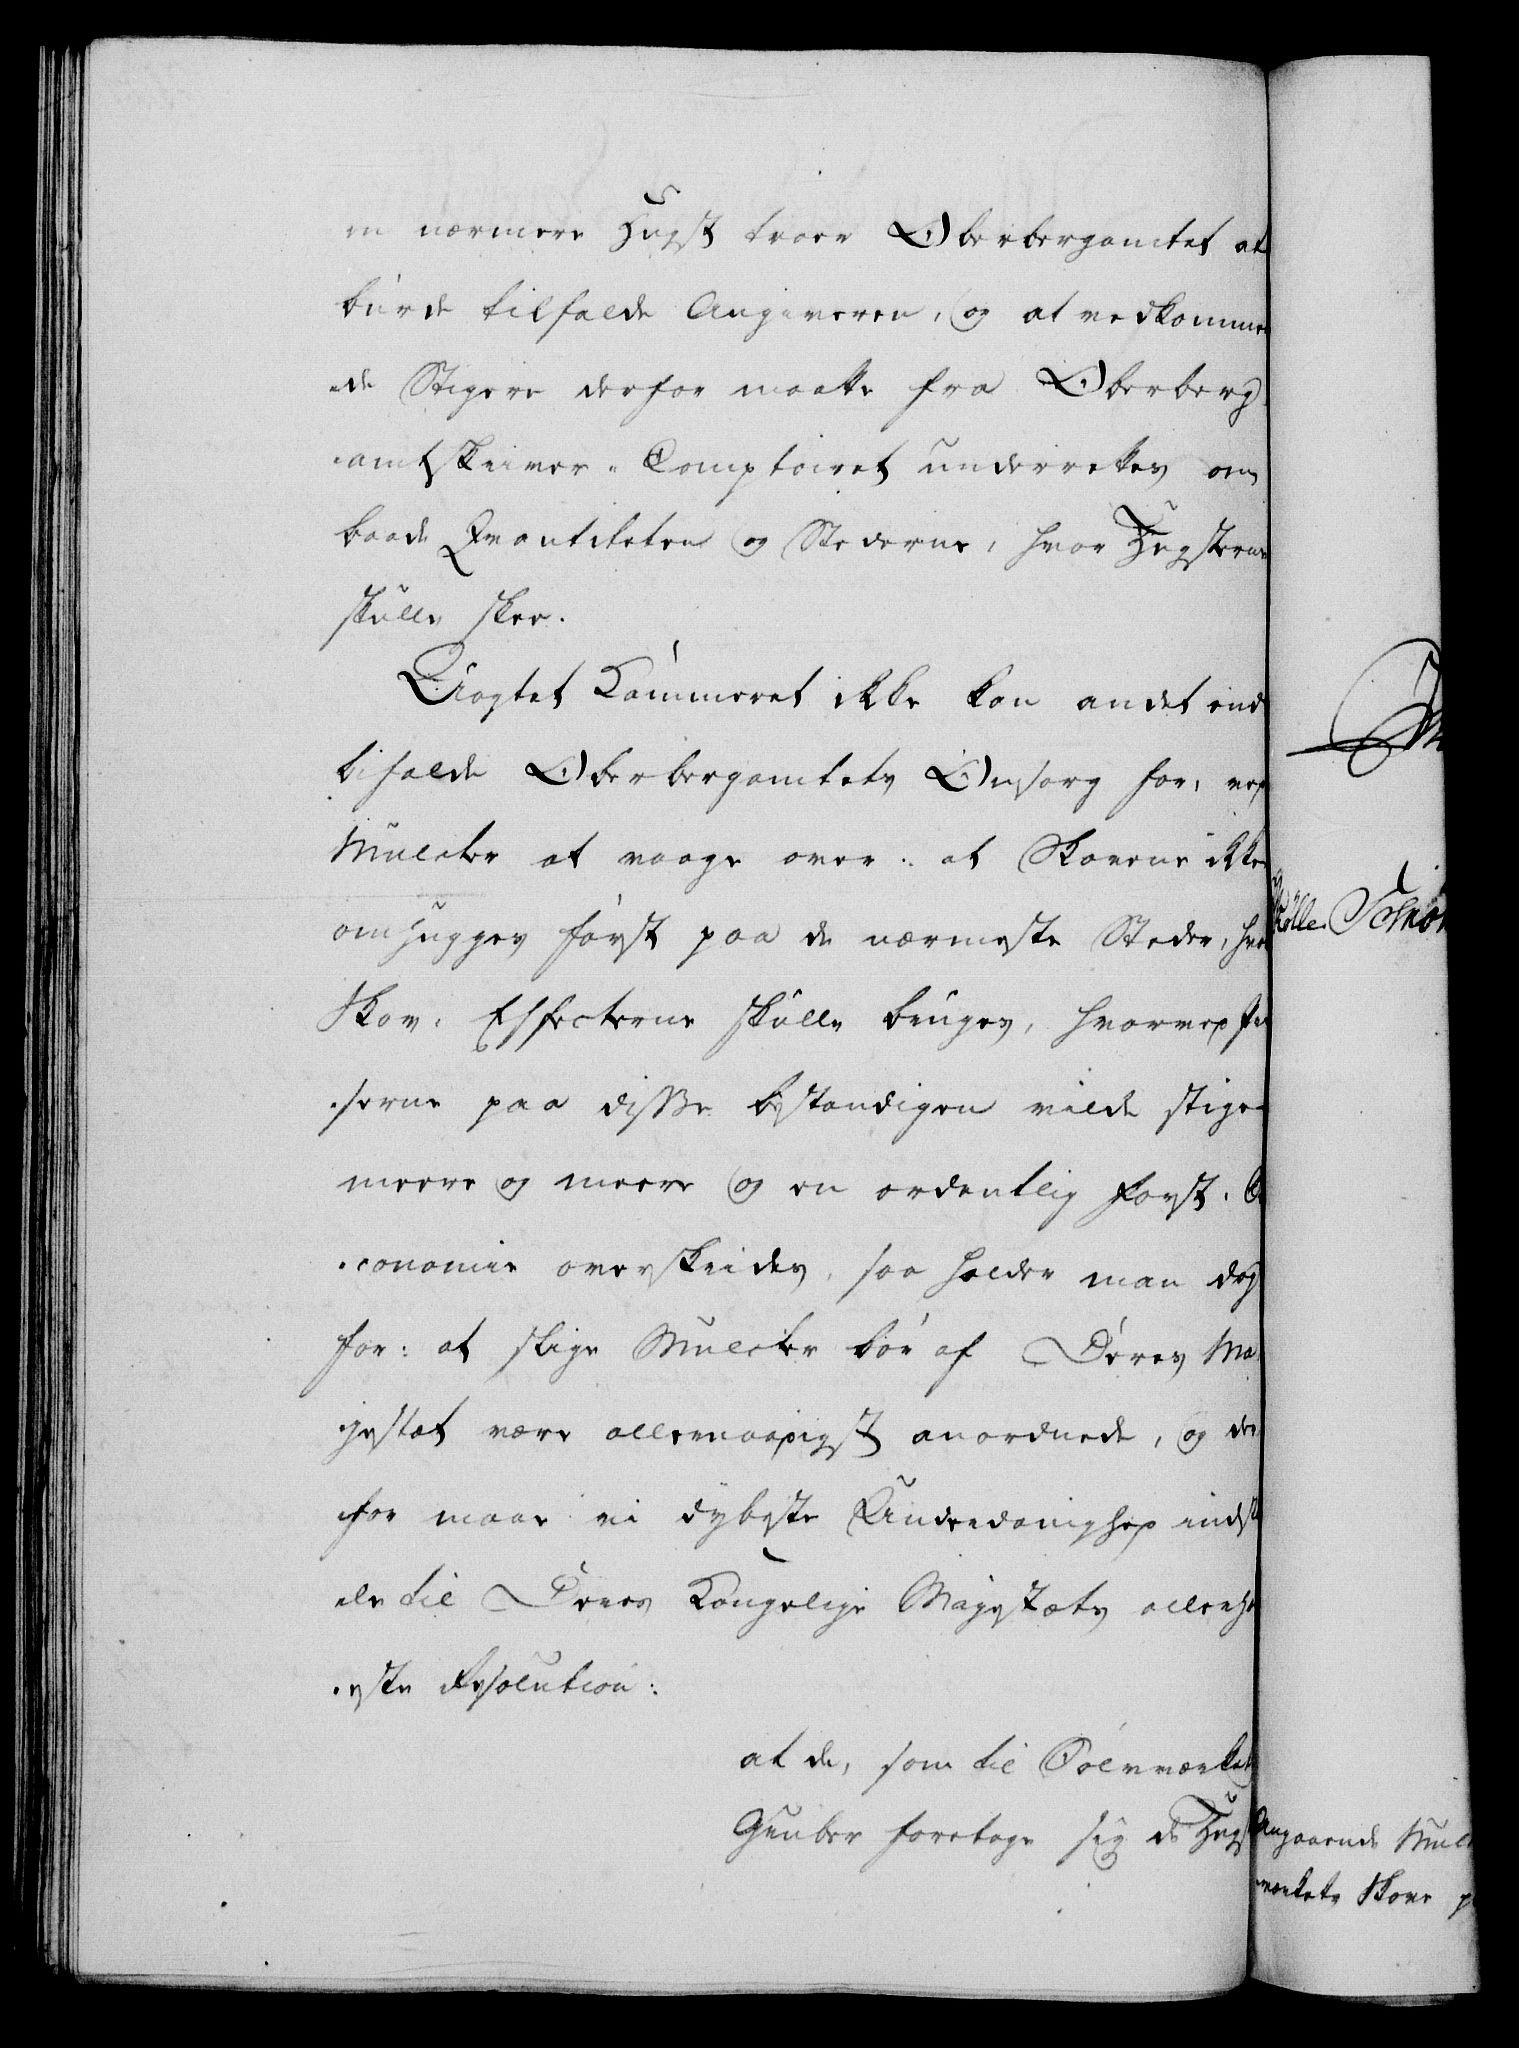 en nærmere Hugst troer Oberbergamtet at
burde tilfalde Angiveren, og at vedkommen
-de Stigere derfor maatte fra Oberberg
-amtskriver-Comptoiret underrettes om
baade Qvantiteten og Stederne, hvor Hugsterne
skulle skee.
Uagtet Kammeret ikke kan andet end
bifalde Oberbergamtets Omsorg for, ved
Mulcter at vaage over: at Skovene ikke
omhugges først paa de nærmeste Steder, hvor
Skov-Effecterne skulle bruges, hvorved Pri
-serne paa disse bestandigen vilde stige
meere og meere og en ordentlig Forst-O
-conomie overskrides, saa holder man dog
for: at slige Mulcter bør af Deres Ma
-jestæt være allernaadigst anordnede, og der
-for maae vi i dybeste Underdanighed indstil
-le til Deres Kongelige Majestæts allerhø
-yeste Resolution:
at de, som til Sølvværkets
Gruber foretage sig de Hugst
Angaaende Mul
værkets Skove p